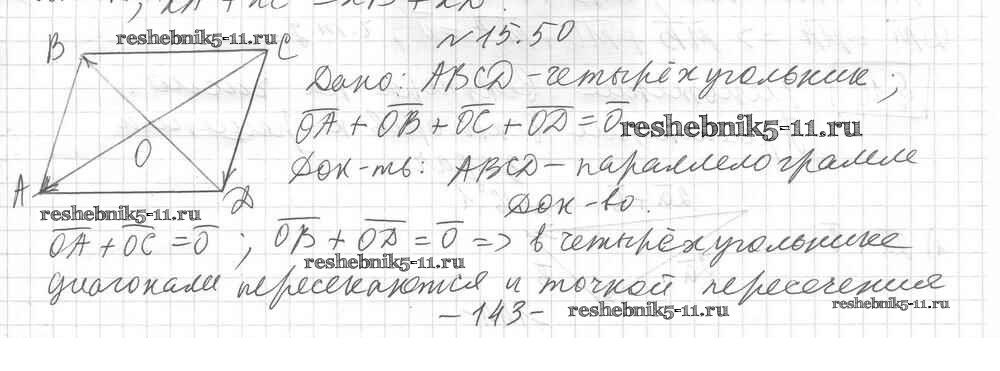 , XA + XC = XB + XD.
№15.50
B
C
reshebnik5-11.ru
Дано: ABCD – четырёхугольник;
OA + OB + OC + OD = O
reshebnik5-11.ru
O
Док-ть: ABCD – параллелограмм
A
D
Док-во.
reshebnik5-11.ru
OA + OC = O ; OB + OD = O => в четырёхугольнике
reshebnik5-11.ru
диагонали пересекаются и точкой пересечения
– 143 –
reshebnik5-11.ru
reshebnik5-11.ru